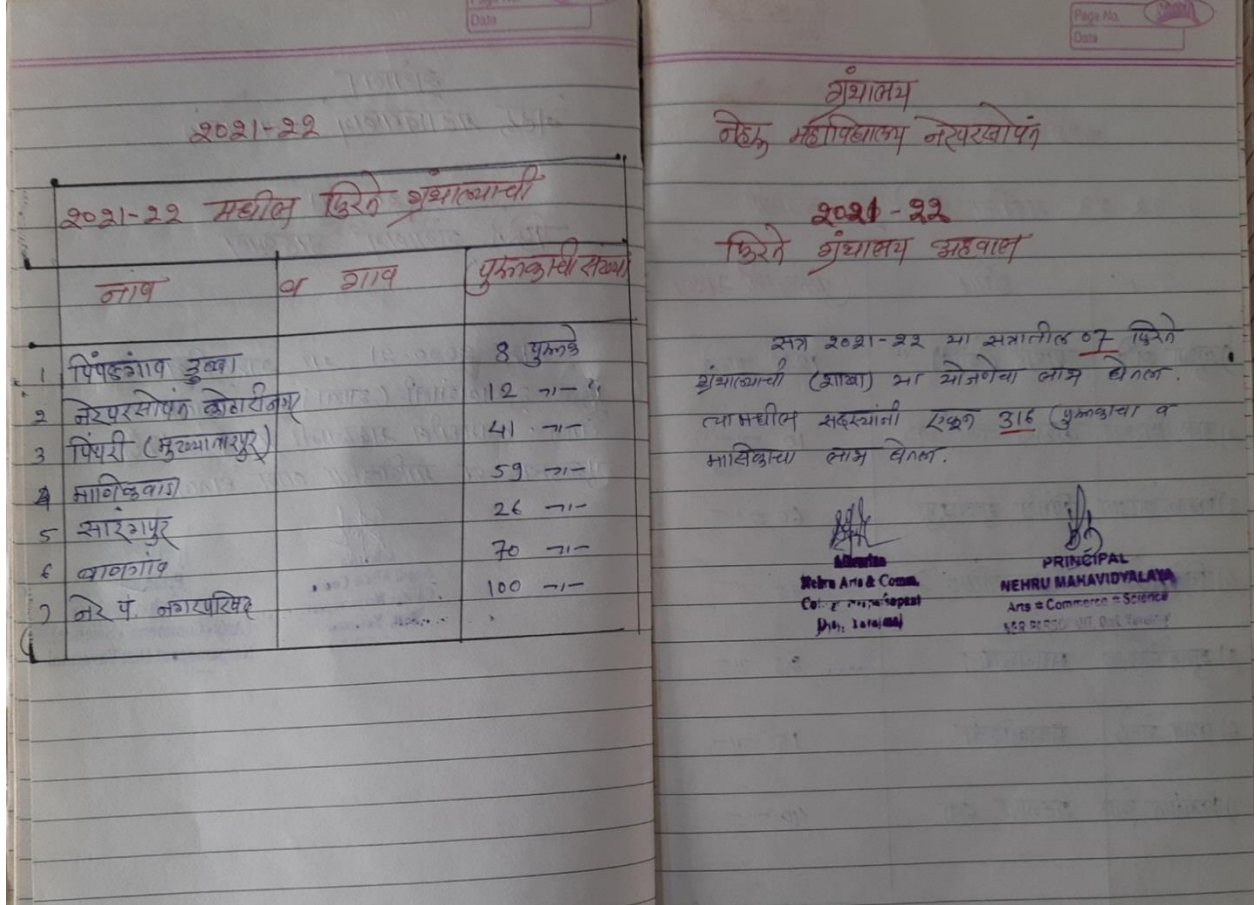 Page No.
Date
२०२१-२२
२०२१-२२ मधील फिरते ग्रंथालयाची
नाव व गाव पुस्तकाची संख्या
1 पिंपळगाव डुब्बा 8 पुस्तके
2 नेरपरसोपंत कोठारीनगर 12 -॥-
3 पिंपरी (मुख्त्यारपुर) 41 -॥-
4 माणिकवाडा 59 -॥-
5 सारंगपुर 26 -॥-
6 बाणगांव 70 -॥-
7 नेर पं. नगरपरिषद 100 -॥-
Page No.
Date
ग्रंथालय
नेहरू महाविद्यालय नेरपरसोपंत
२०२१-२२
फिरते ग्रंथालय अहवाल
सत्र २०२१-२२ या सत्रातील 07 फिरते
ग्रंथालयाची (शाखा) या योजनेचा लाभ घेतला.
त्यामधील सदस्यांनी एकूण 316 पुस्तकाचा व
मासिकाचा लाभ घेतला.
Librarian
Nehru Arts & Comm.
PRINCIPAL
NEHRU MAHAVIDYALAYA
Arts = Commerce = Science